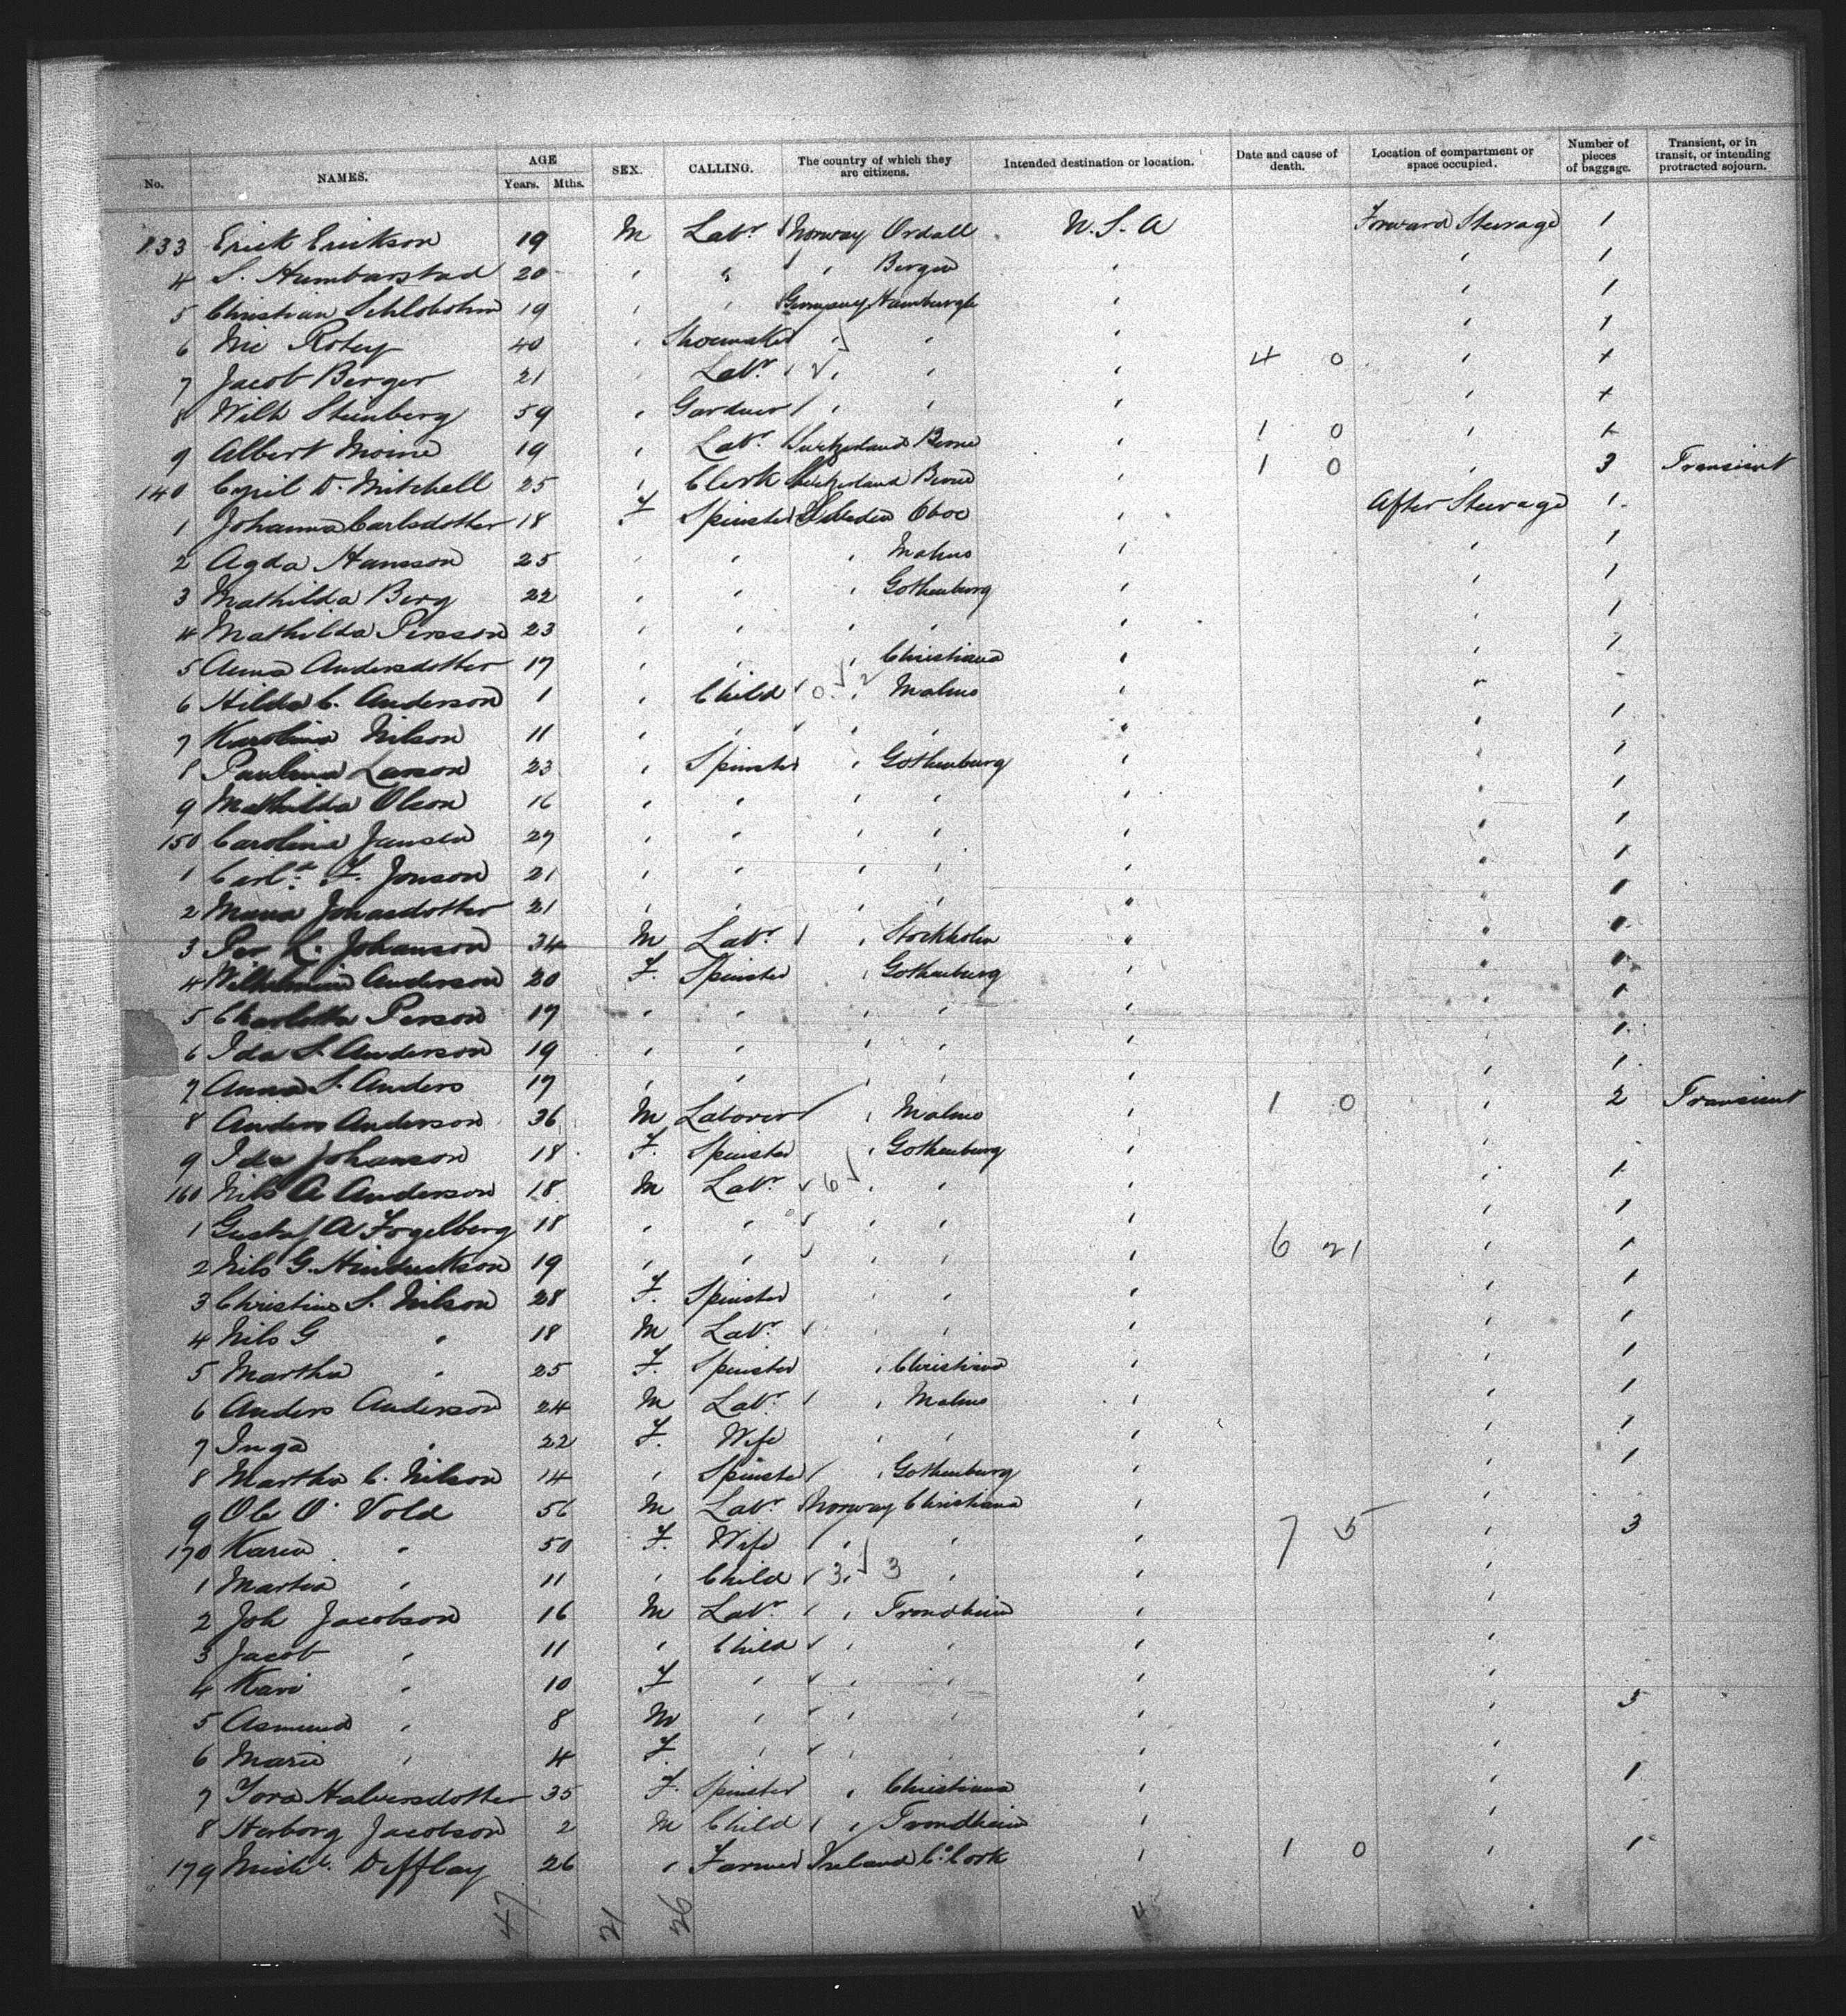 No. NAMES. AGE Years. Mths. SEX. CALLING. The country of which they are citizens. Intended destination or location. Date and cause of death. Location of compartment or space occupied. Number of pieces of baggage. Transient, or in transit, or intending protracted sojourn.
133 Erick Erickson 19 M Labr Norway Ordall U.S.A Forward Steerage 1
4 S. Humbarstad 20 " " " Bergen " " 1
5 Christian Schlobohm 19 " " Germany Hamburgh " " 1
6 Nic Rotey 40 " Shoemaker " " " " 1
7 Jacob Berger 21 " Labr " " " 4 0 " +
8 Wilh Steinberg 59 " Gardner " " " " +
9 Albert Moine 19 " Labr Switzerland Berne " 1 0 " 1
140 Cyril D. Mitchell 25 " Clerk Switzerland Berne " 1 0 " 3 Transient
1 Johanna Carlsdotter 18 F Spinster Sweden " After Steerage 1
2 Agda Hansson 25 " " " Malmo " " 1
3 Mathilda Berg 22 " " " Gothenburg " " 1
4 Mathilda Persson 23 " " " " " " 1
5 Anna Andersdotter 17 " " " Christiana " " 1
6 Hilda C. Anderson 1 " Child 0 2 " Malmo " " -
7 Karolina Nilson 11 " " " " " " 1
8 Paulina Larson 23 " Spinster " Gothenburg " " 1
9 Mathilda Olson 16 " " " " " " 1
150 Carolina Jansen 27 " " " " " " 1
1 Carlt. F. Jonson 21 " " " " " " 1
2 Maria Jonasdotter 21 " " " " " " 1
3 Per L. Johanson 34 M Labr " Stockholm " " 1
4 Wilhelmina Anderson 20 F. Spinster " Gothenburg " " 1
5 Charlotta Person 17 " " " " " " 1
6 Ida S. Anderson 19 " " " " " " 1
7 Anna S. Anders 17 " " " " " " 1
8 Anders Anderson 36 M Laborer " Malmo " 1 0 " 2 Transient
9 Ida Johanson 18 F. Spinster " Gothenburg " "
160 Nils A Anderson 18 M Labr 6 " " " " 1
1 Gustaf A Fogelberg 18 " " " " " " 1
2 Nils G. Hindrickson 19 " " " " " 6 21 " 1
3 Christina S. Nilson 28 F. Spinster " " " " 1
4 Nils G " 18 M Labr " " " " 1
5 Martha " 25 F. Spinster " Christiana " " 1
6 Anders Anderson 24 M Labr " Malmo " " 1
7 Inga " 22 F. Wife " " " " 1
8 Martha C. Nilson 14 " Spinster " Gothenburg " " 1
9 Ole O. Vold 56 M Labr Norway Christiana " "
170 Karen " 50 F. Wife " " " 7 5 " 3
1 Martha " 11 " Child 3 " 3 " " "
2 Joh Jacobson 16 M Labr " Trondheim " "
3 Jacob " 11 " Child " " " "
4 Kari " 10 F " " " " "
5 Asmund " 8 M " " " " " 3
6 Marie " 4 F. " " " " "
7 Tora Halversdotter 35 F. Spinster " Christiana " " 1
8 Herborg Jacobson 2 M Child " Trondheim " "
179 Michl. Defflay 26 " Farmer Ireland Co. Cork " 1 0 " 1
47 21 26